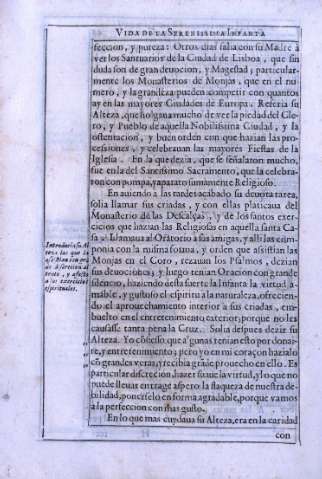 VIDA DE LA SERENISSIMA INFANTA
feccion, y pureza: Otros dias salia con su Madre à
ver los Santuarios de la Ciudad de Lisboa, que sin
duda son de gran deuocion, y Magestad; particular-
mente los Monasterios de Monjas, que en el nu-
mero, y la grandeza pueden competir con quantos
ay en las mayores Ciudades de Europa. Referia su
Alteza, que holgaua mucho de ver la piedad del Cle-
ro, y Pueblo de aquella Nobilissima Ciudad, y la
ostentacion, y buen orden con que hazian las pro-
cessiones, y celebrauan las mayores Fiestas de la
Iglesia. En la que dezia, que se señalaron mucho,
fue en la del Santissimo Sacramento, que la celebra-
ron con pompa, y aparato sumamente Religioso.
En auiendo a las tardes acabado su deuota tarea,
solia llamar sus criadas, y con ellas platicaua del
Monasterio de las Descalças, y de los santos exer-
cicios que hazian las Religiosas en aquella santa Ca-
sa: Llamaua al Oratorio a sus amigas, y alli las com-
ponia con la misma forma, y orden que assistian las
Monjas en el Coro, rezauan los Psalmos, dezian
sus deuociones; y luego tenian Oracion con grande
silencio, haziendo desta suerte la Infanta la virtud a-
mable, y gustoso el espiritu a la naturaleza, ofrecien-
do el aprouechamiento interior a sus criadas, em-
buelto en el entretenimiento exterior, porque no les
causasse tanta pena la Cruz. Solia despues dezir su
Alteza. Yo confiesso que algunas tenian esto por donai-
re, y entretenimiento; pero yo en mi coraçon hazialo
cõ grandes veras, y recibia grãde prouecho en ello. Es
particular discrecion, hazer suaue la virtud, y lo que no
puede lleuar entrage aspero la flaqueza de nuestra de-
bilidad, ponerselo en forma agradable, porque vamos
a la perfeccion con mas gusto.
En lo que mas cuydaua su Alteza, era en la caridad
con
Introducia la In-
fanta los que la
assistian con grã
de discrecion al
trato, y afecto
a los exercicios
espirituales.